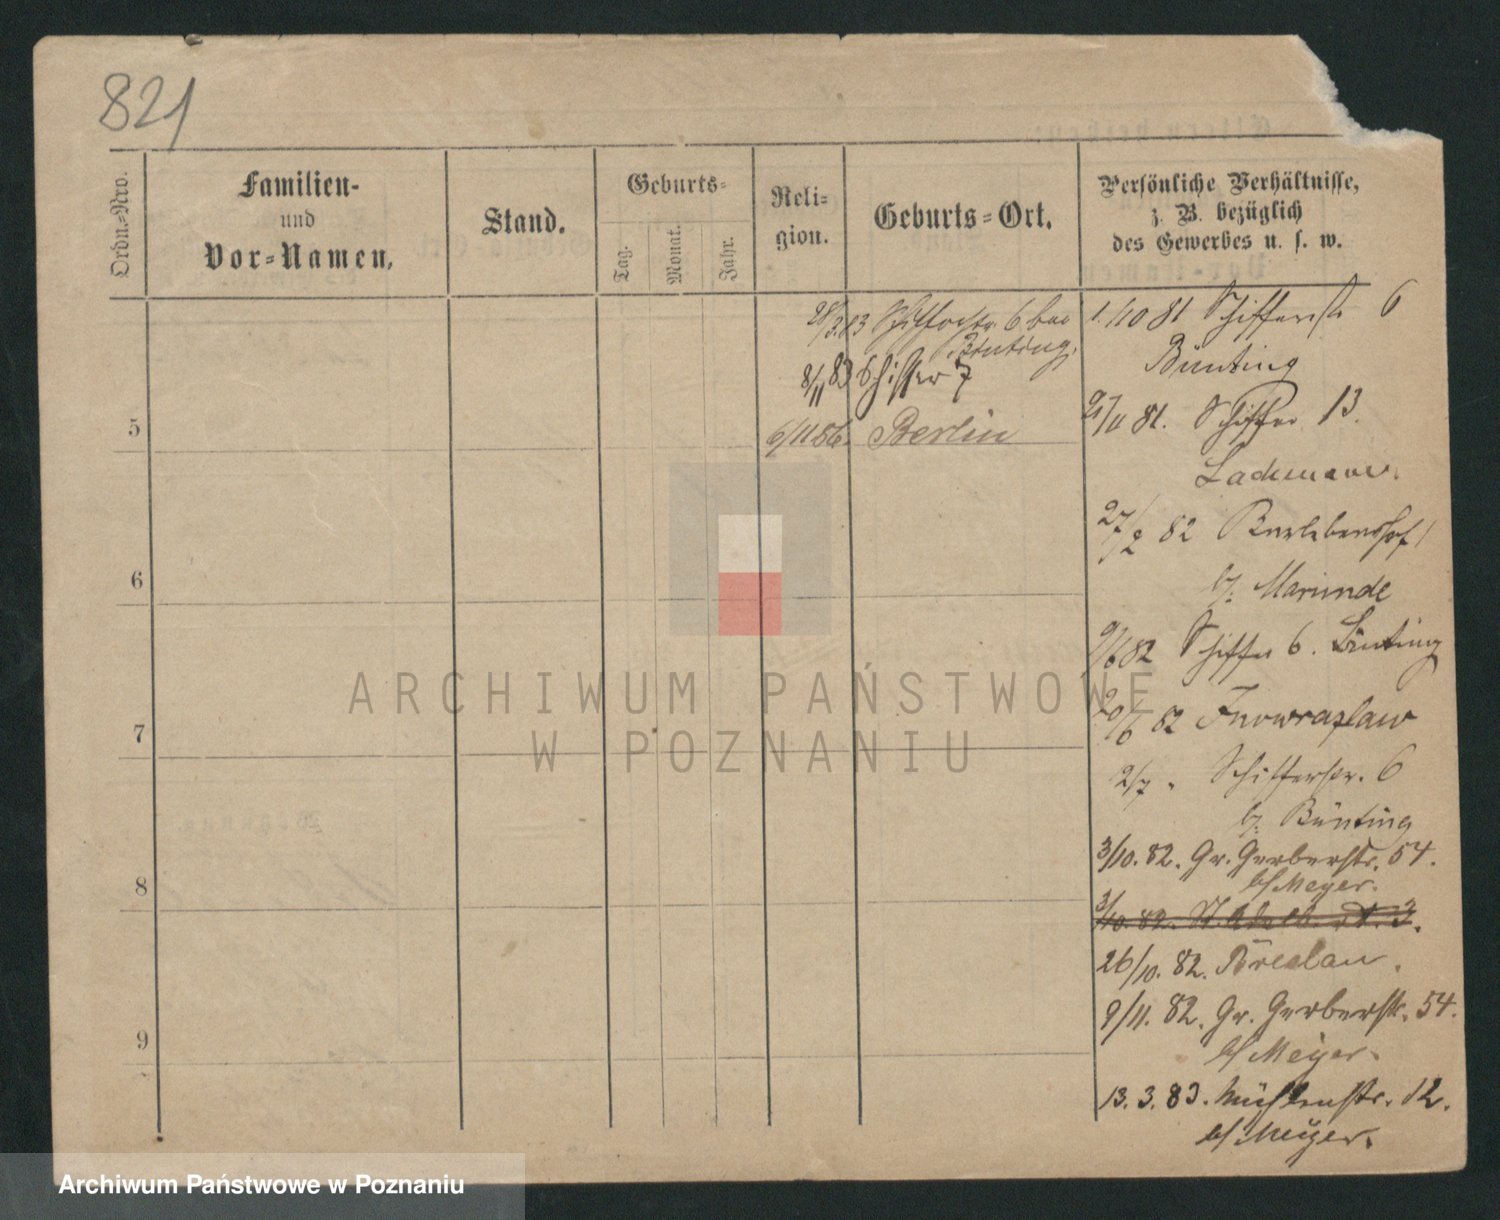 821
Ordn.-Nro.
Familien-
und
Vor-Namen,
Stand.
Geburts-
Tag.
Monat.
Jahr.
Reli-
gion.
Geburts-Ort.
Persönliche Verhältnisse,
z. B. bezüglich
des Gewerbes u. s. w.
5
6
7
8
9
28/3.83 Schifferstr. 6 bei
Bünting.
8/11 83 Schiffer 7
6/11 86. Berlin
1./10 81 Schifferstr 6
Bünting
21/11 81. Schiffer 13.
Lademann.
27/2 82
b/. Marunde
9/6 82 Schiffer 6. Bünting
20/6 82 Inowrazlaw
2/7 " Schifferstr. 6
b/. Bünting
3/10. 82. Gr. Gerberstr. 54.
b/ Meyer.
3/10. 82. St. Adalb. 3.
26/10. 82. Breslau.
9/11. 82. Gr. Gerberstr. 54.
b/ Meyer.
13. 3. 83. Mühlenstr. 12.
b/ Meyer.
ARCHIWUM PAŃSTWOWE
W POZNANIU
Archiwum Państwowe w Poznaniu